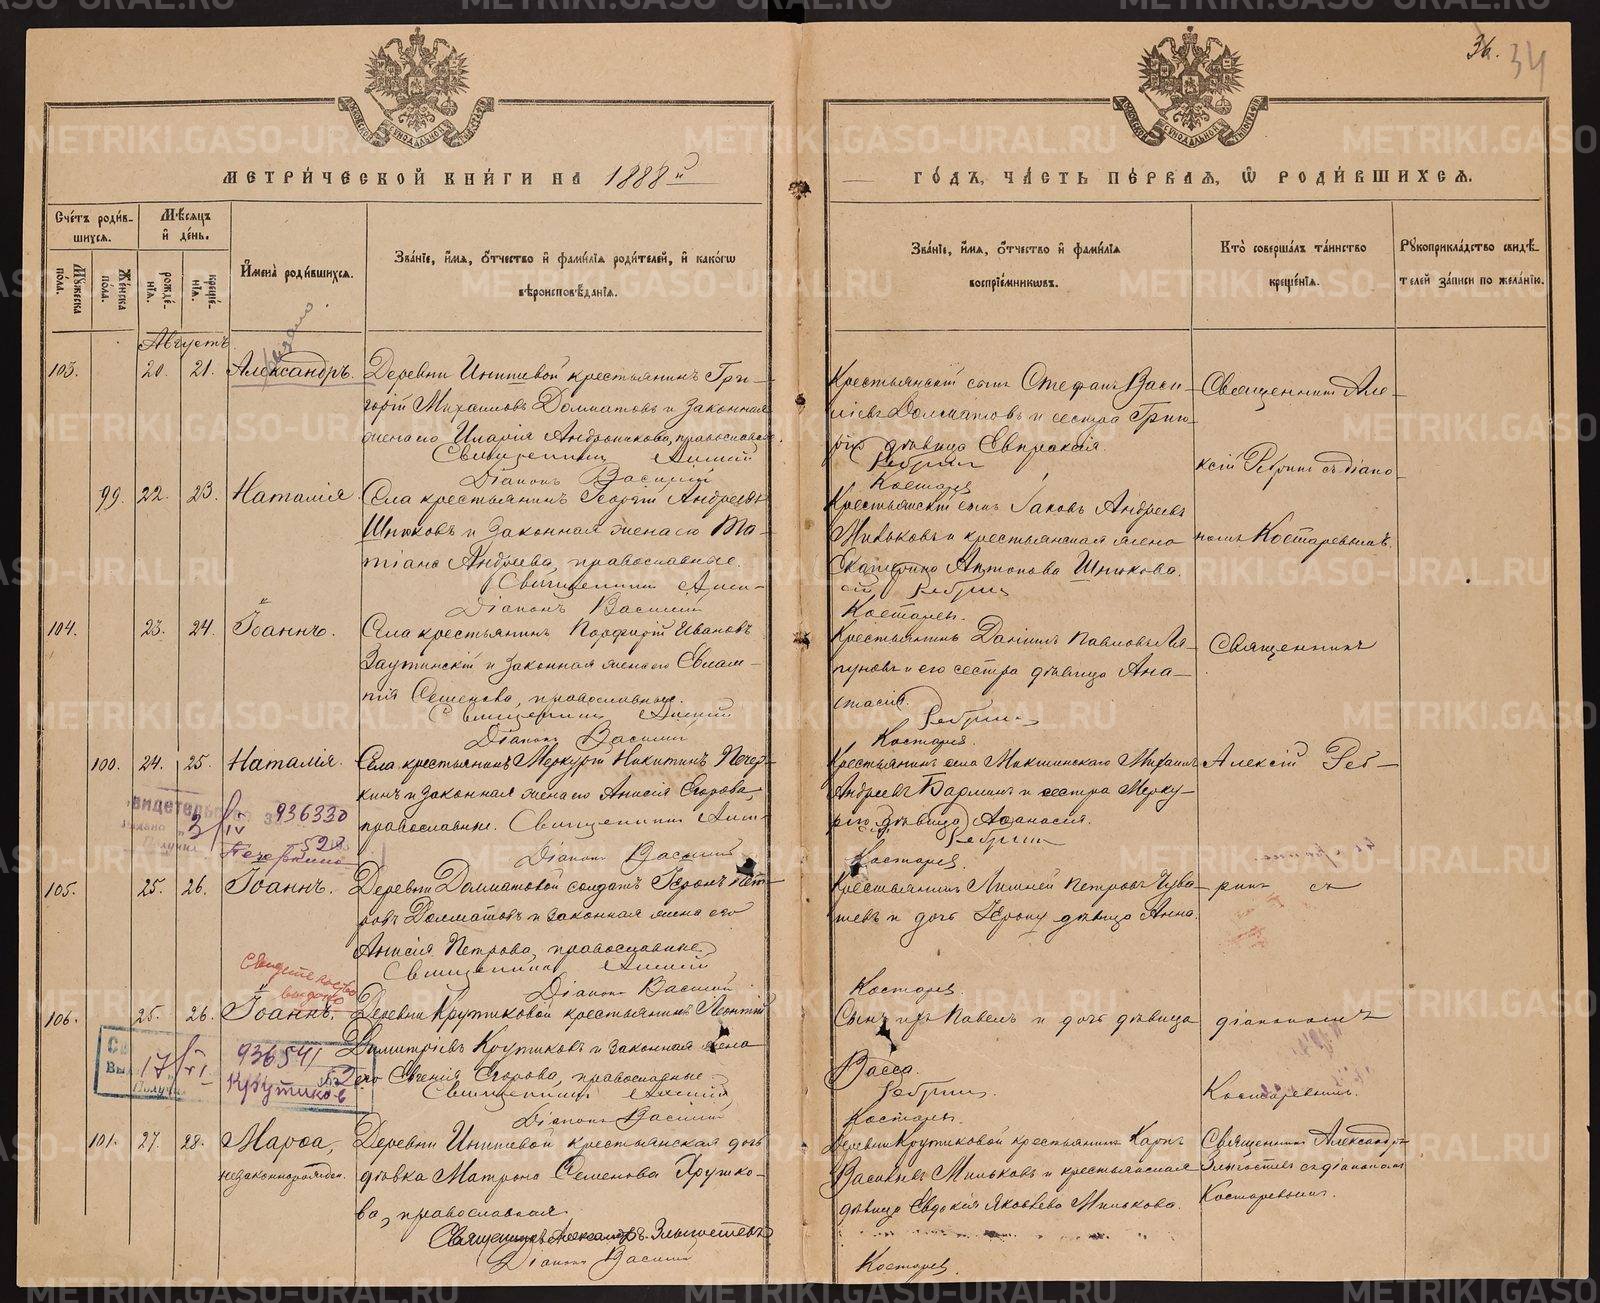 36.
34
МЕТРИ́ЧЕСКОЙ КНИ́ГИ НА 1888й
ГО́ДЪ, ЧА́СТЬ ПЕ́РВАЯ, Ѡ РОДИ́ВШИХСЯ.
Сче́тъ роди́в-
шихся.
Мѣсяцъ
и҆ де́нь.
Му́жеска по́ла.
Же́нска по́ла.
рожде́-
нїя.
креще́-
нїя.
И҆мена̀ роди́вшихся.
Зва́нїе, и҆́мя, ѻ҆́тчество и҆ фами́лїя роди́телей, и҆ како́гѡ
вѣроисповѣ́данїя.
Зва́нїе, и҆́мя, ѻ҆́тчество и҆ фами́лїя
воспрїе́мникѡвъ.
Кто̀ соверша́лъ та́инство
креще́нїя.
Рꙋкоприкла́дство свидѣ́-
телей за́писи по жела́нїю.
Августъ
103. 20. 21. Александръ.
Деревни Инишевой крестьянинъ Гри-
горій Михаиловъ Долматовъ и законная
жена его Иларія Андроникова, православные.
Священникъ Алексій
Діаконъ Василій
Крестьянскій сынъ Стефанъ Васи-
ліевъ Долматовъ и сестра Григо-
рія дѣвица Евпраксія.
Ребринъ
Костарев
Священникъ Але-
99. 22. 23. Наталія.
Села крестьянинъ Георгій Андреевъ
Шнюковъ и законная жена его Та-
тіана Андреева, православные.
Священникъ Алек-
Діаконъ Василій
Крестьянскій сынъ Іаковъ Андреевъ
Мильковъ и крестьянская жена
Екатерина Антонова Шнюкова.
сій Ребринъ
Костарев.
ксій Ребринъ съ діако-
номъ Костаревымъ.
104. 23. 24. Іоаннъ.
Села крестьянинъ Порфирій Ивановъ
Заутинскій и законная жена его Евлам-
пія Семенова, православные.
Священникъ Алексій
Діаконъ Василій
Крестьянинъ Даніилъ Павловъ Ля-
пуновъ и его сестра дѣвица Ана-
стасія.
Ребринъ
Костарев.
Священникъ
100. 24. 25. Наталія.
Села крестьянинъ Меркурій Никитинъ Печер-
кинъ и законная жена его Анисія Егорова,
православные. Священникъ Алек-
Діаконъ Василій
Крестьянинъ села Макшинскаго Михаилъ
Андреевъ Барминъ и сестра Мерку-
рія дѣвица Афанасія.
сій Ребринъ
Костарев.
Алексій Реб-
936330
Печеркиной
105. 25. 26. Іоаннъ.
Деревни Долматовой солдатъ Іеронъ Пет-
ровъ Долматовъ и законная жена его
Анисія Петрова, православные
Священникъ Алексій
Діаконъ Василій
Крестьянинъ Лимней Петровъ Чува-
шевъ и дочь Іерону дѣвица Анна.
Костарев.
ринъ съ
Свидетельство
выдано
106. 25. 26. Іоаннъ.
Деревни Крутиковой крестьянинъ Леонтій
Димитріевъ Крутиковъ и законная жена
его Евгенія Егорова, православные
Священникъ Алексій
Діаконъ Василій
Сынъ ихъ Павелъ и дочь дѣвица
Васса.
Ребринъ.
Костарев.
діакономъ
Костаревымъ.
936541
Крутиков
101. 27. 28. Марѳа,
незаконнорожден.
Деревни Инишевой крестьянская дочь
дѣвка Матрона Семенова Грушко-
ва, православная.
Священникъ Александръ Злыгостевъ
Діаконъ Василій
Деревни Крутиковой крестьянинъ Карпъ
Васильевъ Мильковъ и крестьянская
дѣвица Евдокія Яковлева Милькова.
Костарев.
Священникъ Александръ
Злыгостевъ съ діакономъ
Костаревымъ.
METRIKI.GASO-URAL.RU